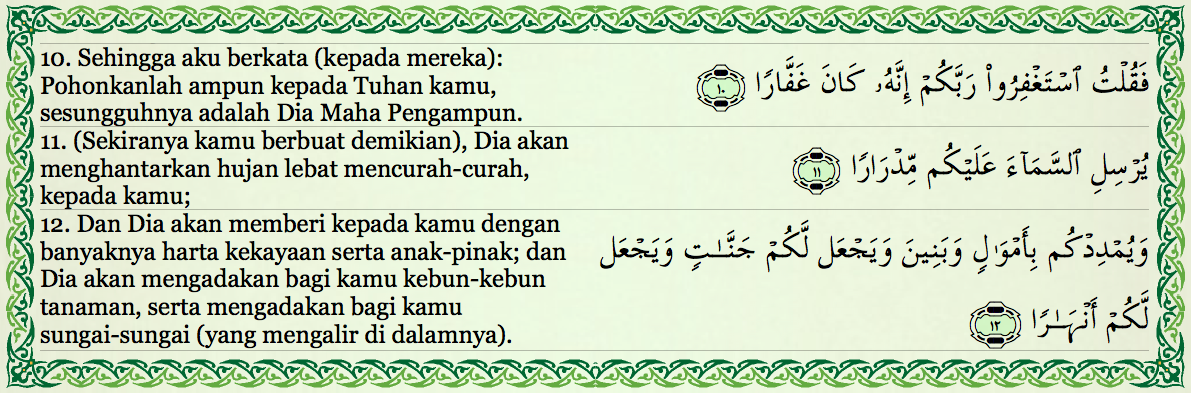 10. Sehingga aku berkata (kepada mereka):
Pohonkanlah ampun kepada Tuhan kamu,
sesungguhnya adalah Dia Maha Pengampun.
فَقُلْتُ ٱسْتَغْفِرُوا۟ رَبَّكُمْ إِنَّهُۥ كَانَ غَفَّارًا ١٠
11. (Sekiranya kamu berbuat demikian), Dia akan
menghantarkan hujan lebat mencurah-curah,
kepada kamu;
يُرْسِلِ ٱلسَّمَآءَ عَلَيْكُم مِّدْرَارًا ١١
12. Dan Dia akan memberi kepada kamu dengan
banyaknya harta kekayaan serta anak-pinak; dan
Dia akan mengadakan bagi kamu kebun-kebun
tanaman, serta mengadakan bagi kamu
sungai-sungai (yang mengalir di dalamnya).
وَيُمْدِدْكُم بِأَمْوَٰلٍ وَبَنِينَ وَيَجْعَل لَّكُمْ جَنَّـٰتٍ وَيَجْعَل
لَّكُمْ أَنْهَـٰرًا ١٢